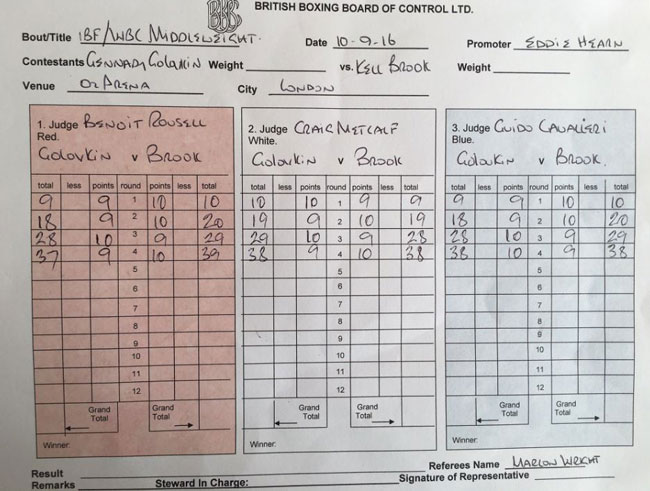 BRITISH BOXING BOARD OF CONTROL LTD.
Bout/Title IBF/WBC MIDDLEWEIGHT. Date 10-9-16 Promoter EDDIE HEARN
Contestants GENNADY GOLOVKIN Weight vs. KELL BROOK Weight
Venue O2 ARENA City LONDON
1. Judge BENOIT ROUSELL
Red.
GOLOVKIN v BROOK
total less points round points less total
9 9 1 10 10
18 9 2 10 20
28 10 3 9 29
37 9 4 10 39
5
6
7
8
9
10
11
12
Grand Total Grand Total
Winner:
2. Judge CRAIG METCALF
White.
GOLOVKIN v BROOK
total less points round points less total
10 10 1 9 9
19 9 2 10 19
29 10 3 9 28
38 9 4 10 38
5
6
7
8
9
10
11
12
Grand Total Grand Total
Winner:
3. Judge GUIDO CAVALIERI
Blue.
GOLOVKIN v BROOK.
total less points round points less total
9 9 1 10 10
18 9 2 10 20
28 10 3 9 29
38 10 4 9 38
5
6
7
8
9
10
11
12
Grand Total Grand Total
Winner:
Referees Name MARLON WRIGHT
Result
Remarks Steward In Charge: Signature of Representative